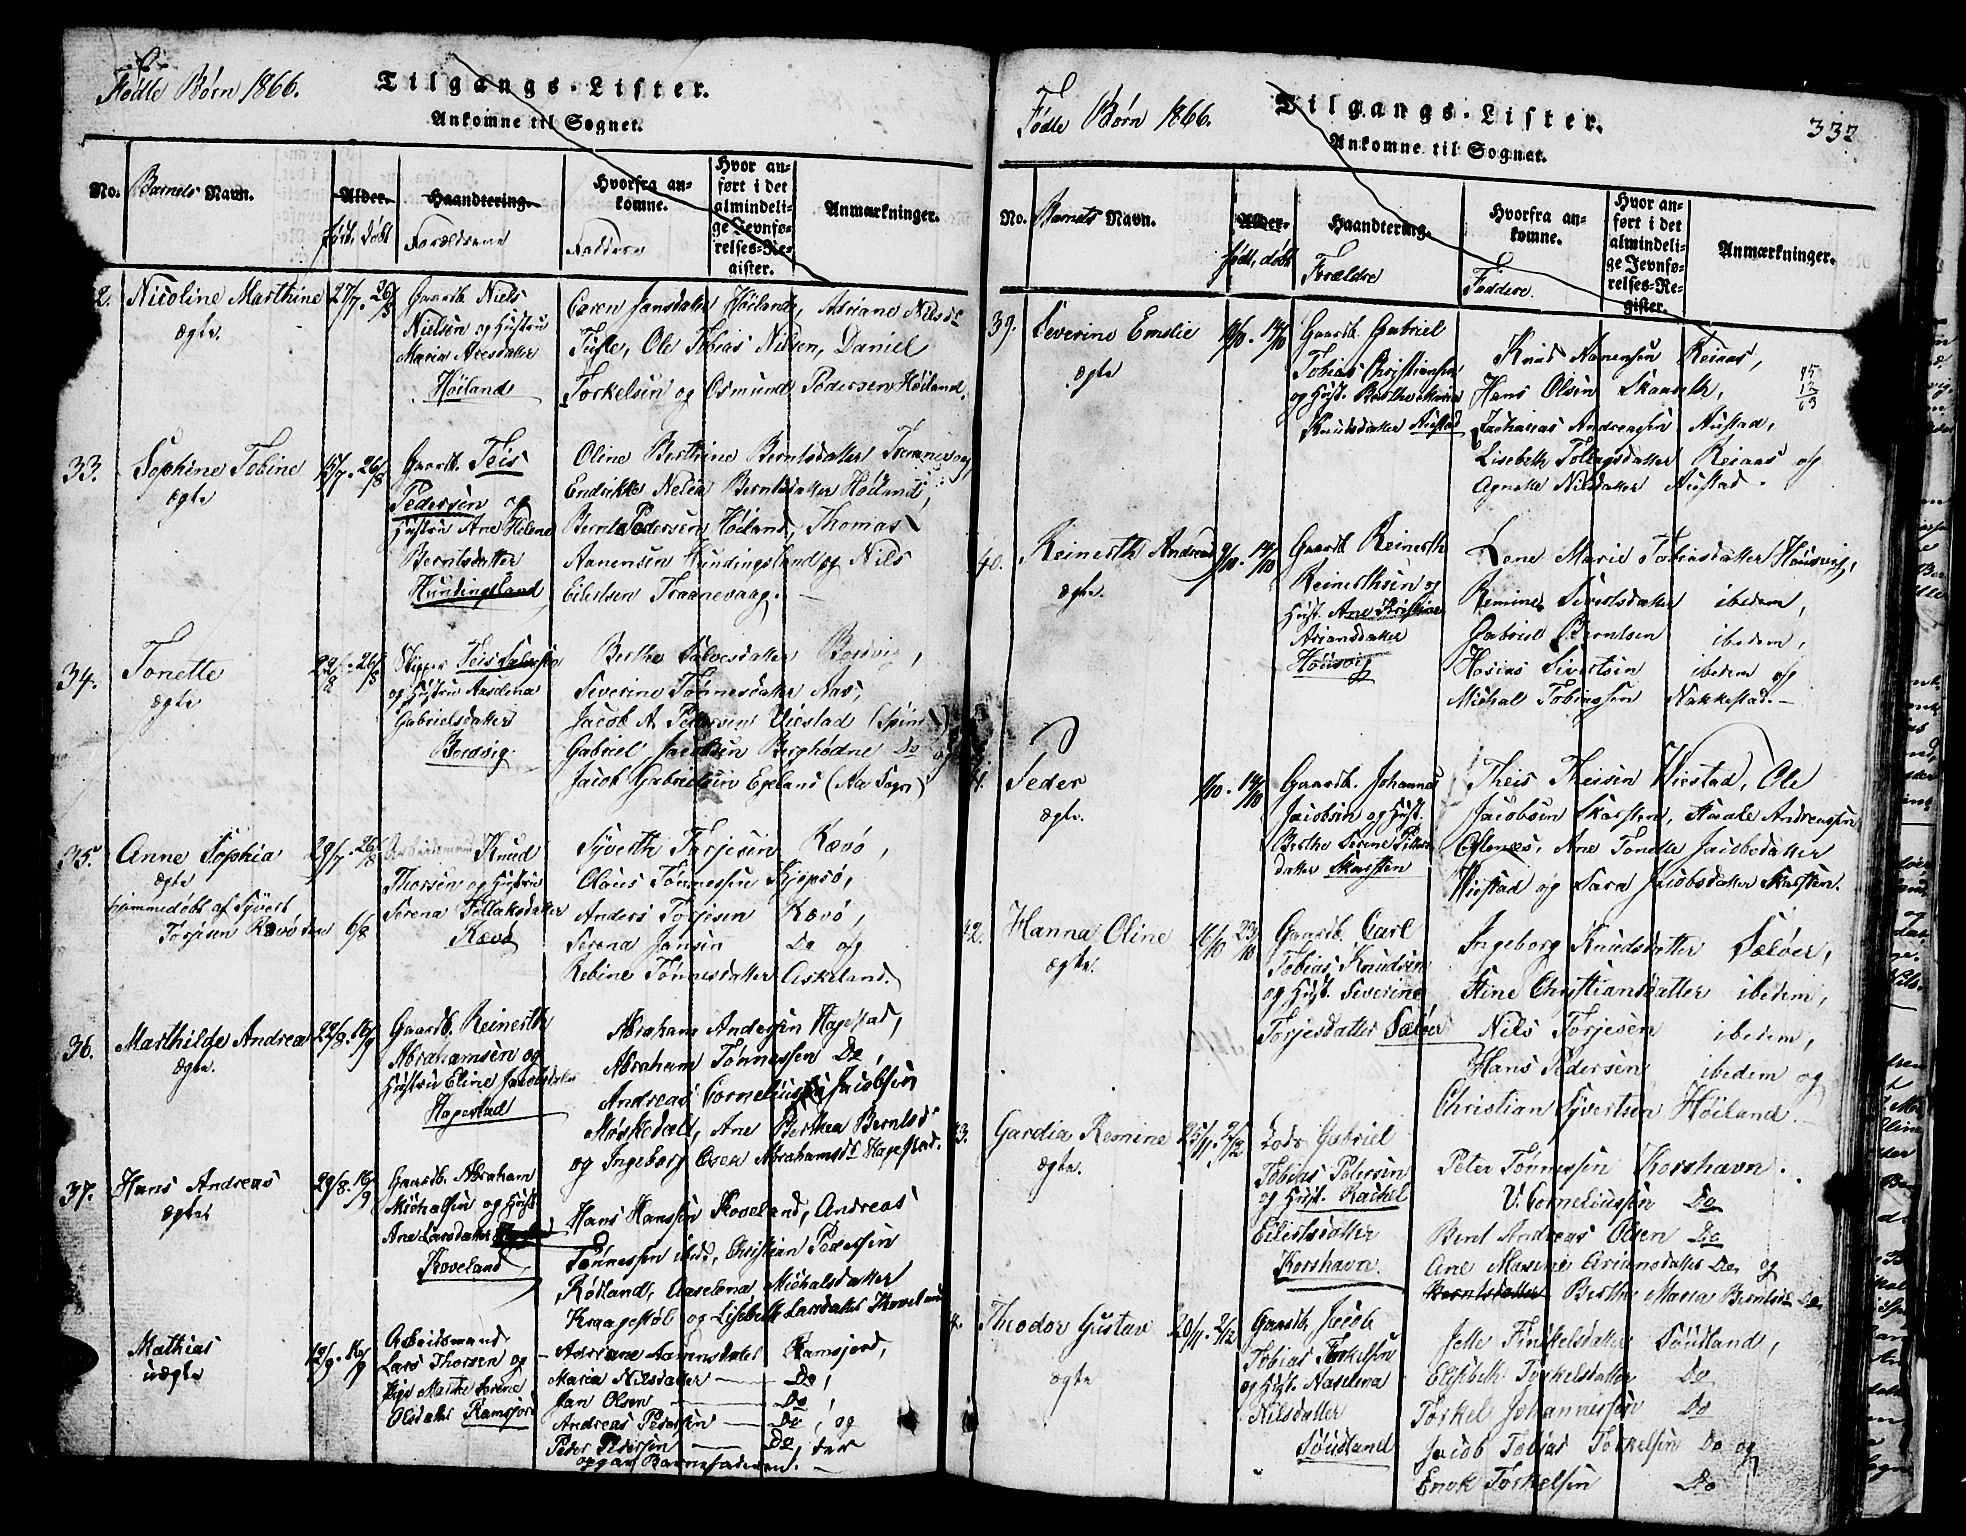 Fødte Børn 1866.
Tilgangs-Lister.
Ankomne til Sognet.
No.
Barnets Navn.
Alder.
født, døbt
Haandtering.
Forældrene
Hvorfra ankomne.
Faddere
Hvor anført i det almindelige Jevnførelses-Register.
Anmærkninger.
2. Nicoline Marthine
ægte.
27/7. 26/8
Gaardb. Niels
Nielsen og Hustru
Maria
Høiland
Caren Jansdatter Høiland, Adriane Nilsdr
Tusle, Ole Tobias Nilsen, Daniel
Torkelsen og Osmund Pedersen Høiland.
33. Sophine Tobine
ægte
15/7. 26/8
Gaardb. Teis
Pedersen og
Hustru Ane Helene
Berntsdatter
Hundingsland
Oline Berthine Berntsdatter Traanevaag
Endrikke Nelea Berntsdatter Høiland,
Bernt Pedersen Høiland, Thomas
Aanensen Hundingsland og Nils
Eilertsen Traanevaag.
34. Tonette
ægte
22/8. 26/8
Skipper Teis Salvesen
og Hustru Aaslena
Gabrielsdatter
Bordvig
Berthe Salvesdatter Bordvig,
Severine Tønnesdatter Aas,
Jacob A. Petersen Virstad (Spind)
Gabriel Jacobsen Berghødne Do og
Jacob Gabrielsen Egeland (Aa Sogn)
35. Anne Sophia
ægte
hjemmedøbt af Syvert
Torjesen Rævø den 6/8
29/7. 26/8
Arbeidsmand Knud
Thorsen og Hustru
Serena Tollaksdatter
Rævø
Syverth Torjesen Rævø,
Claus Tønnessen Kjepsø,
Anders Torjesen Rævø,
Serena Jansen Do og
Rebine Tønnesdatter Askeland.
36. Marthilde Andrea
ægte.
22/8. 16/9
Gaardb. Reinerth
Abrahamsen og
Hustru Eline Jacobsdatter
Hagestad
Abraham Andersen Hagestad,
Abraham Tønnessen Do,
Andreas Cornelius Jacobsen
Møskedæl, Ane Berthea Berntsdr
og Ingeborg Osea Abrahamsdr Hagestad.
37. Hans Andreas
ægte
29/8. 16/9
Gaardb. Abraham
Michalsen og Hust.
Ane Larsdatter
Skoveland
Hans Hanssen Skoveland, Andreas
Tønnessen ibid, Christian Pedersen
Rødland, Aaselena Michalsdatter
Kraagestøl og Lisebeth Larsdatter Skoveland
Mathias
uægte
12/9. 16/9
Arbeidsmand
Lars Thorsen og
Pige Marthe Serene
Olsdatter Ramsjord
Adriane Aanensdatter Ramsjord,
Maria Nilsdatter Do,
Jan Olsen Do
Andreas Pedersen Do, og
Peder Pedersen Do, der
opgav Barnefaderen.
Fødte Børn 1866.
Tilgangs-Lister.
Ankomne til Sognet.
332
No.
Barnets Navn.
Alder.
født, døbt
Haandtering.
Forældre
Hvorfra ankomne.
Faddere.
Hvor anført i det almindelige Jevnførelses-Register.
Anmærkninger.
39. Severine Emelie
ægte
14/10
Gaardb. Gabriel
Tobias Christiansen
og Hust. Berthe Maria
Knudsdatter Austad
Knud Nanensen Reiaas,
Hans Olsen Skaaseth,
Zacharias Andreassen Austad,
Lisebeth Tollagsdatter Reiaas og
Agnethe Nilsdatter Austad.
40. Reinerth Andreas
ægte.
9/10. 14/10
Gaardb. Reinerth
Reinerthsen og
Hust. Ane Kristine
Ariansdatter
Housvig
Lene Marie Tobiasdatter Housvig,
Remine Sivertsdatter ibedem,
Gabriel Berntsen ibedem,
Hosias Sivertsen ibedem og
Michal Tobiassen Nakkestad.
Peder
ægte.
1/10. 14/10
Gaardb. Johannes
Jacobsen og Hust.
Berthe Serine Peders
datter Skarsten
Theis Theisen Virstad, Ole
Jacobsen Skarsten, Andreassen
Ane Tonette Jacobsdatter
Virstad og Sara Jacobsdatter Skarsten.
42. Hanna Oline
ægte.
16/10 23/10
Gaardb. Carl
Tobias Knudsen
og Hust. Severine
Torjesdatter Sæløer
Ingeborg Knudsdatter Sæløer,
Stine Christiansdatter ibedem,
Nils Torjesen ibedem,
Hans Pedersen ibedem og
Christian Syvertsen Høiland.
43. Gardia Remine
ægte.
25/11. 2/12
Lods Gabriel
Tobias Petersen
og Hust. Rachel
Eilertsdatter
Korshavn.
Peter Tønnessen Korshavn.
V. Corneliussen Do
Bent Andreas Olsen Do
Ane Maxine Ariansdatter Do og
Berntsdatter Berthe Maria Berntsdr Do
Theodor Gustav
ægte
20/11. 2/12
Gaardb. Jacob
Tobias Torkelsen
og Hust. Aaselena
Nilsdatter
Søudland
Jelle Torkelsdatter Søudland,
Elisebeth Torkelsdatter Do
Torkel Johannessen Do
Jacob Tobias Torkelsen Do og
Enok Torkelsen Do